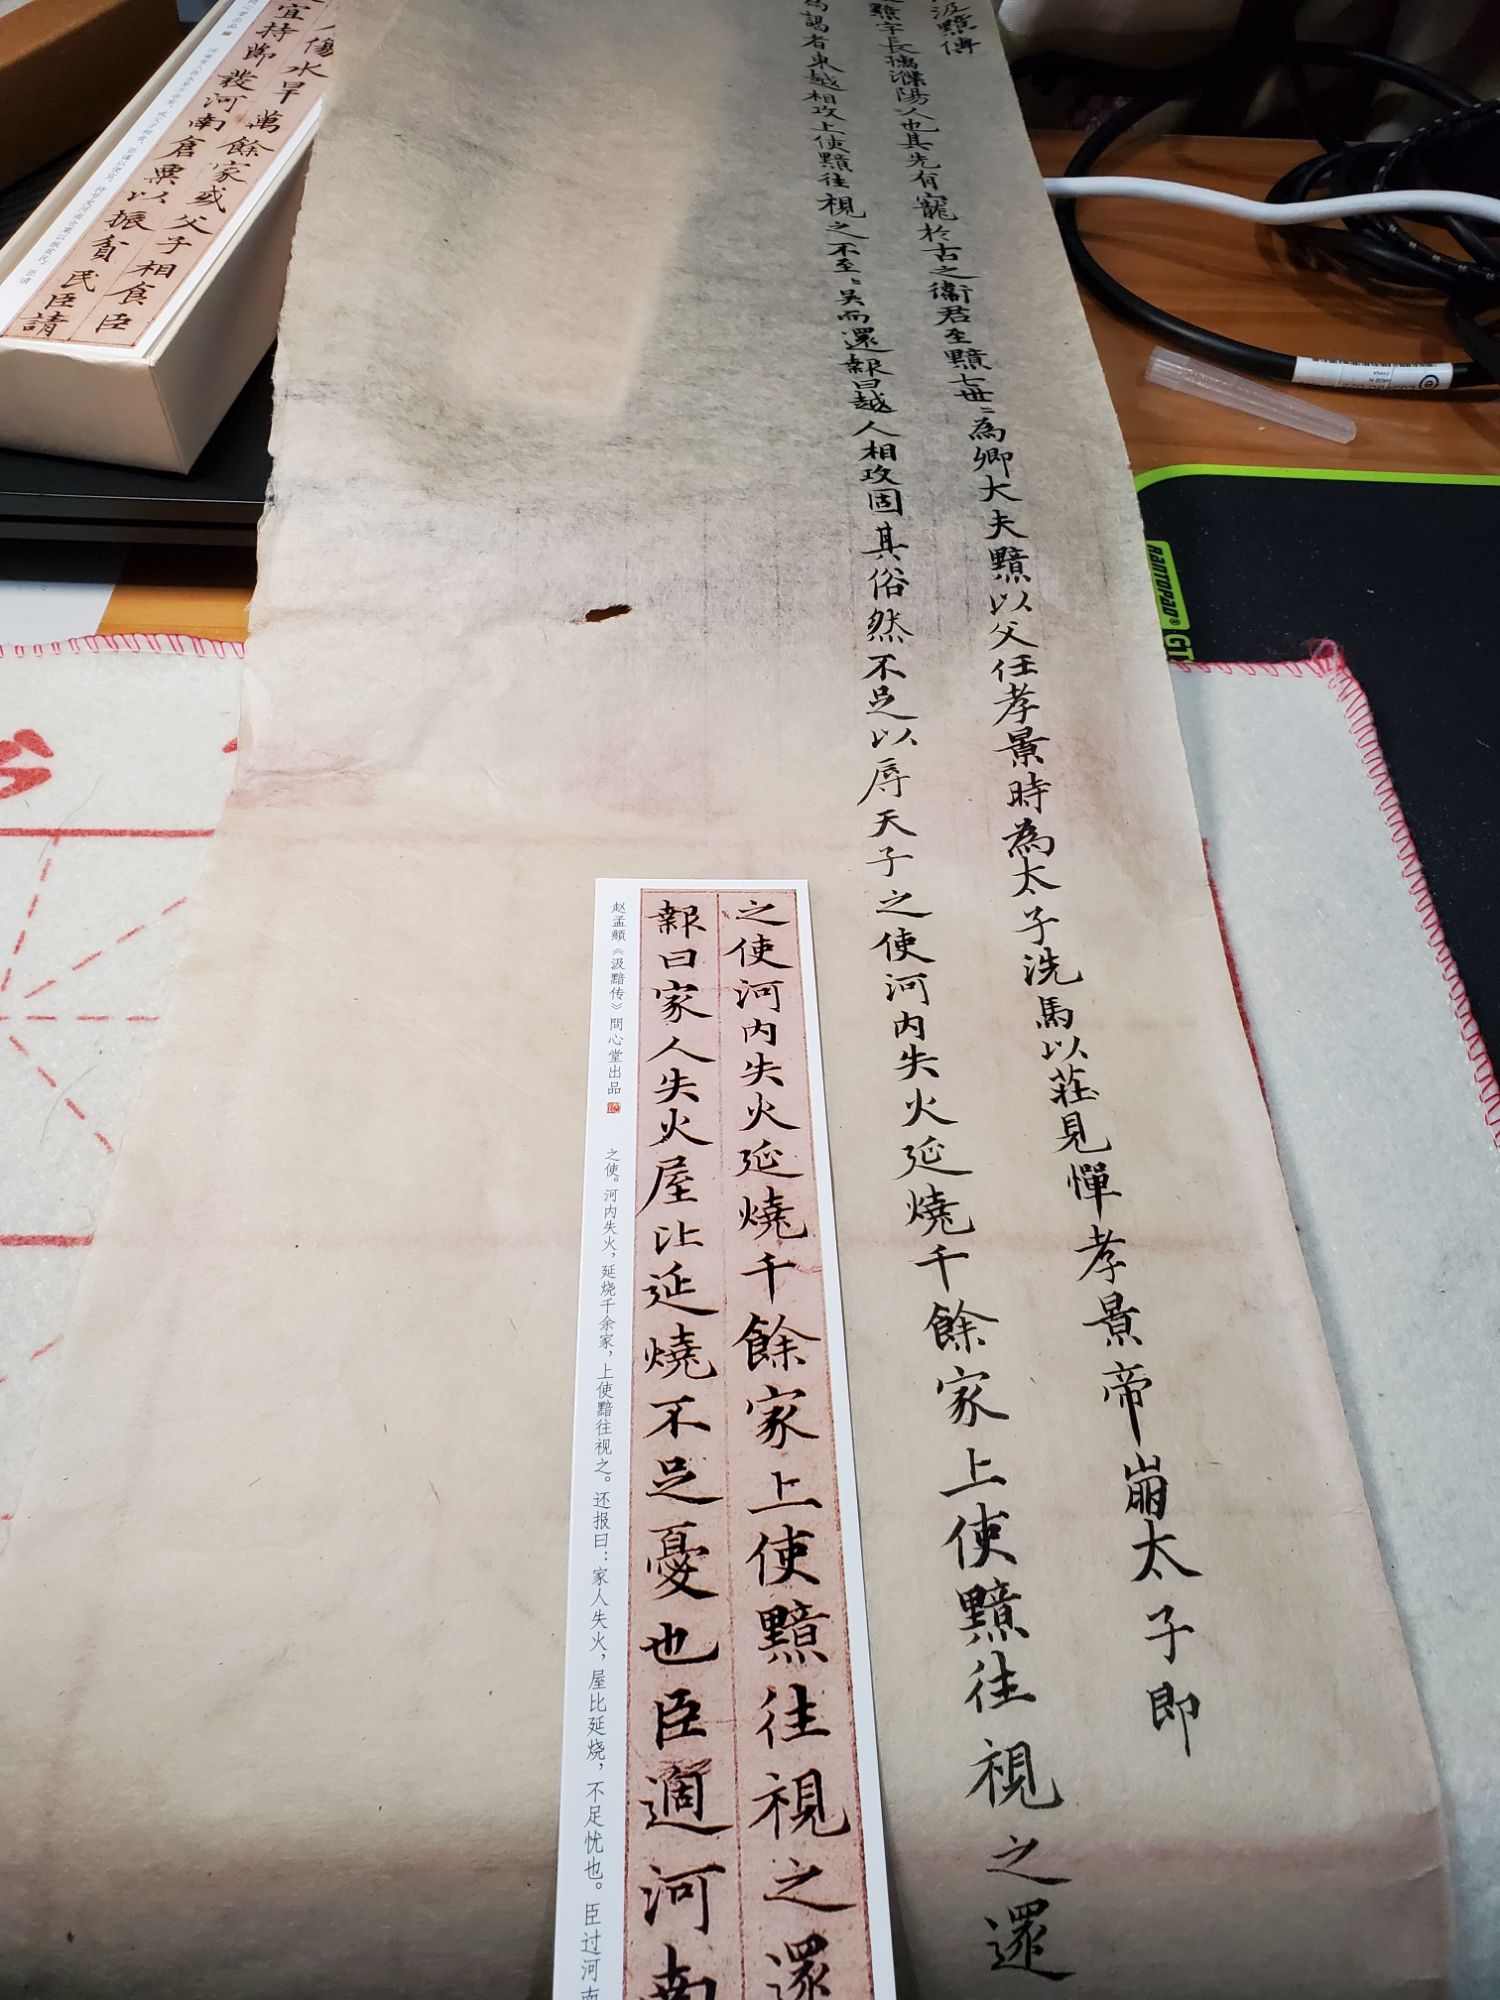 汲黯傳
黯字長孺濮陽人也其先有寵於古之衛君至黯七世〻為卿大夫黯以父任孝景時為太子洗馬以莊見憚孝景帝崩太子即
為謁者東越相攻上使黯往視之不至〻吳而還報曰越人相攻固其俗然不足以辱天子之使河内失火延燒千餘家上使黯往視之還
之使河内失火延燒千餘家上使黯往視之還
報曰家人失火屋比延燒不足憂也臣適河南
赵孟頫《汲黯传》問心堂出品
之使。河内失火，延烧千余家，上使黯往视之。还报曰：家人失火，屋比延烧，不足忧也。臣过河南
人傷水旱萬餘家或父子相食臣
宜持節發河南倉粟以振貧民臣請
問心堂出品
RantoPad®
GT
MADE IN CHINA